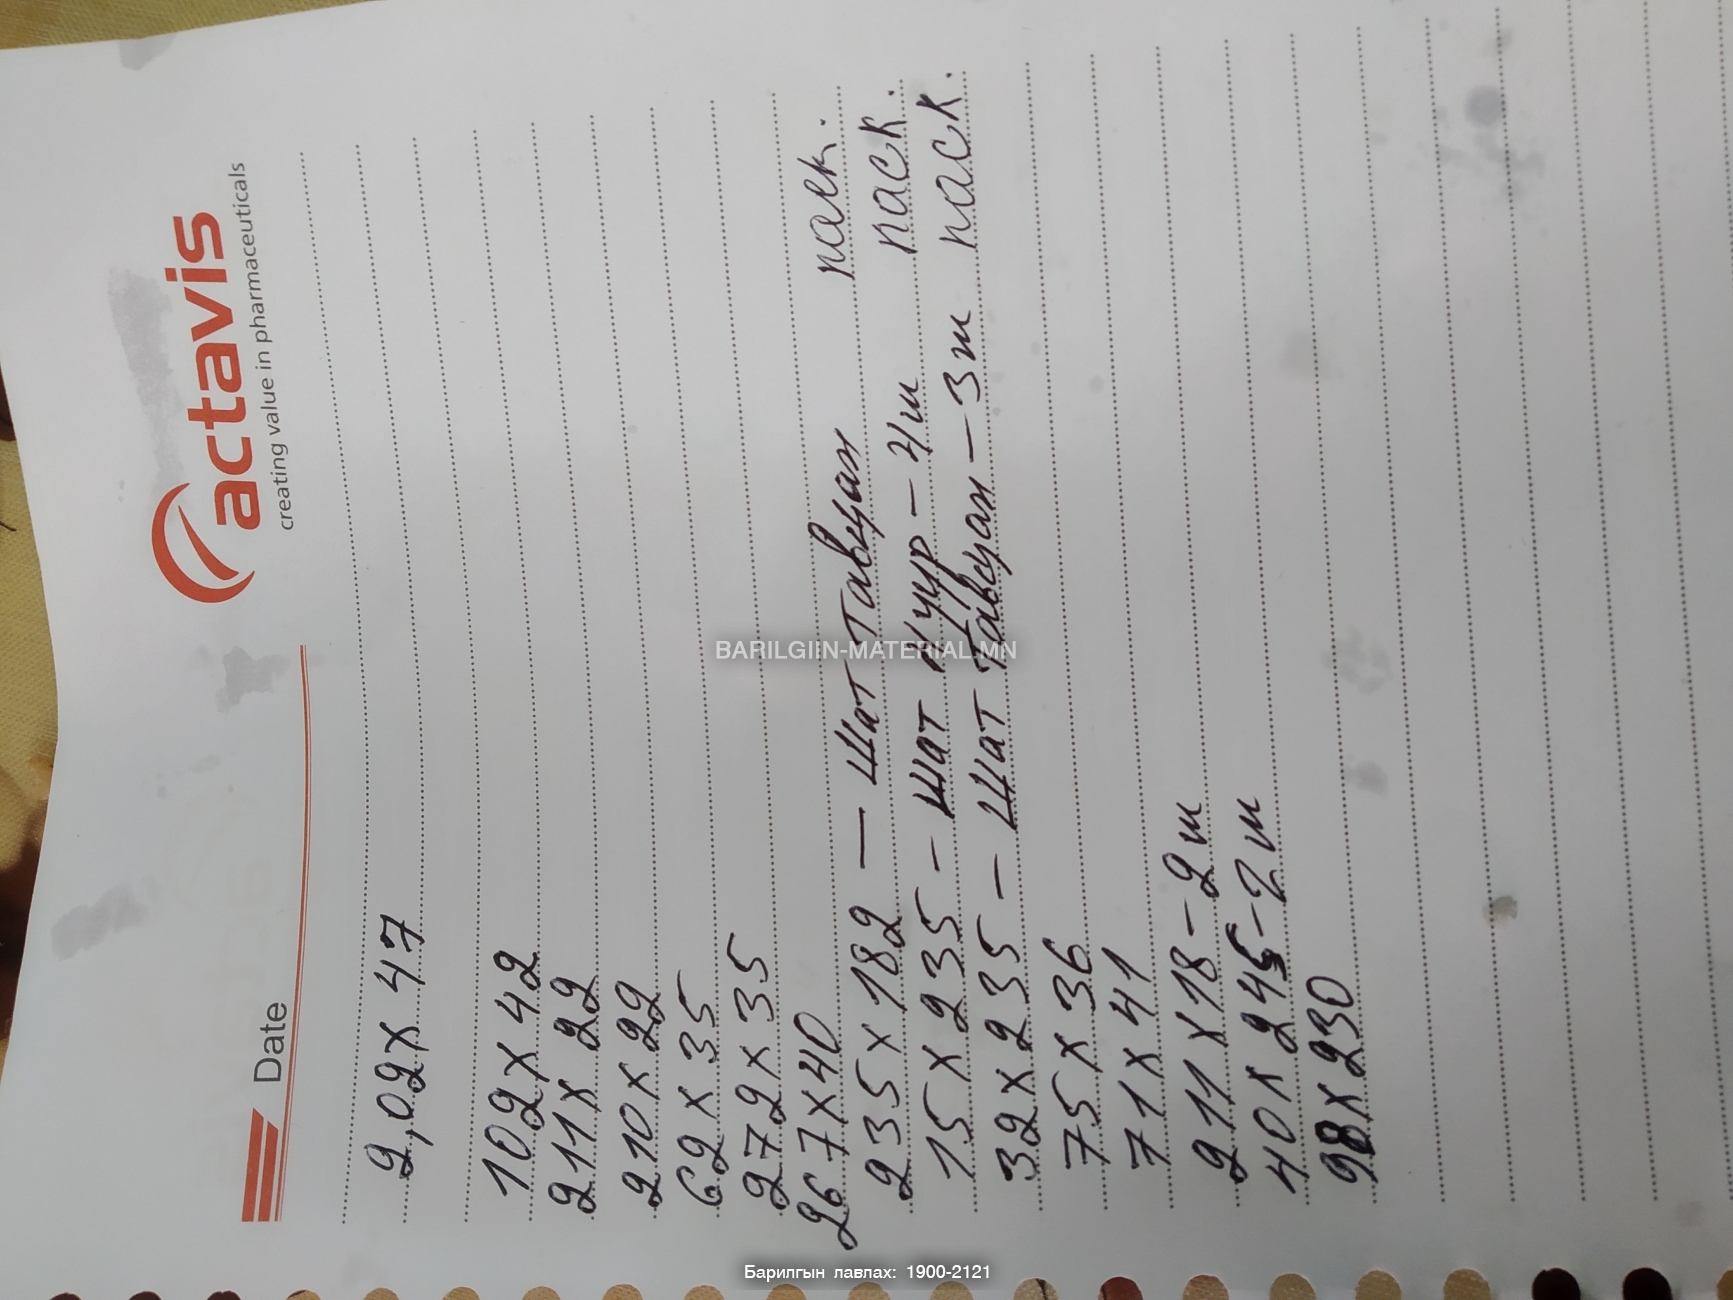 actavis
creating value in pharmaceuticals
Date
2,02х 47
102х 42
211х 22
210х 22
62 х 35
272 х 35
267х40
235 х 182 — шат тавцан паск.
15 х 235 - шат нүүр - 4ш паск.
32х 235 — шат тавцан — 3ш паск.
75 х 36
71 х 41
211 х 18 - 2ш
40 х 245 - 2ш
98х 230
BARILGIIN-MATERIAL.MN
Барилгын лавлах: 1900-2121